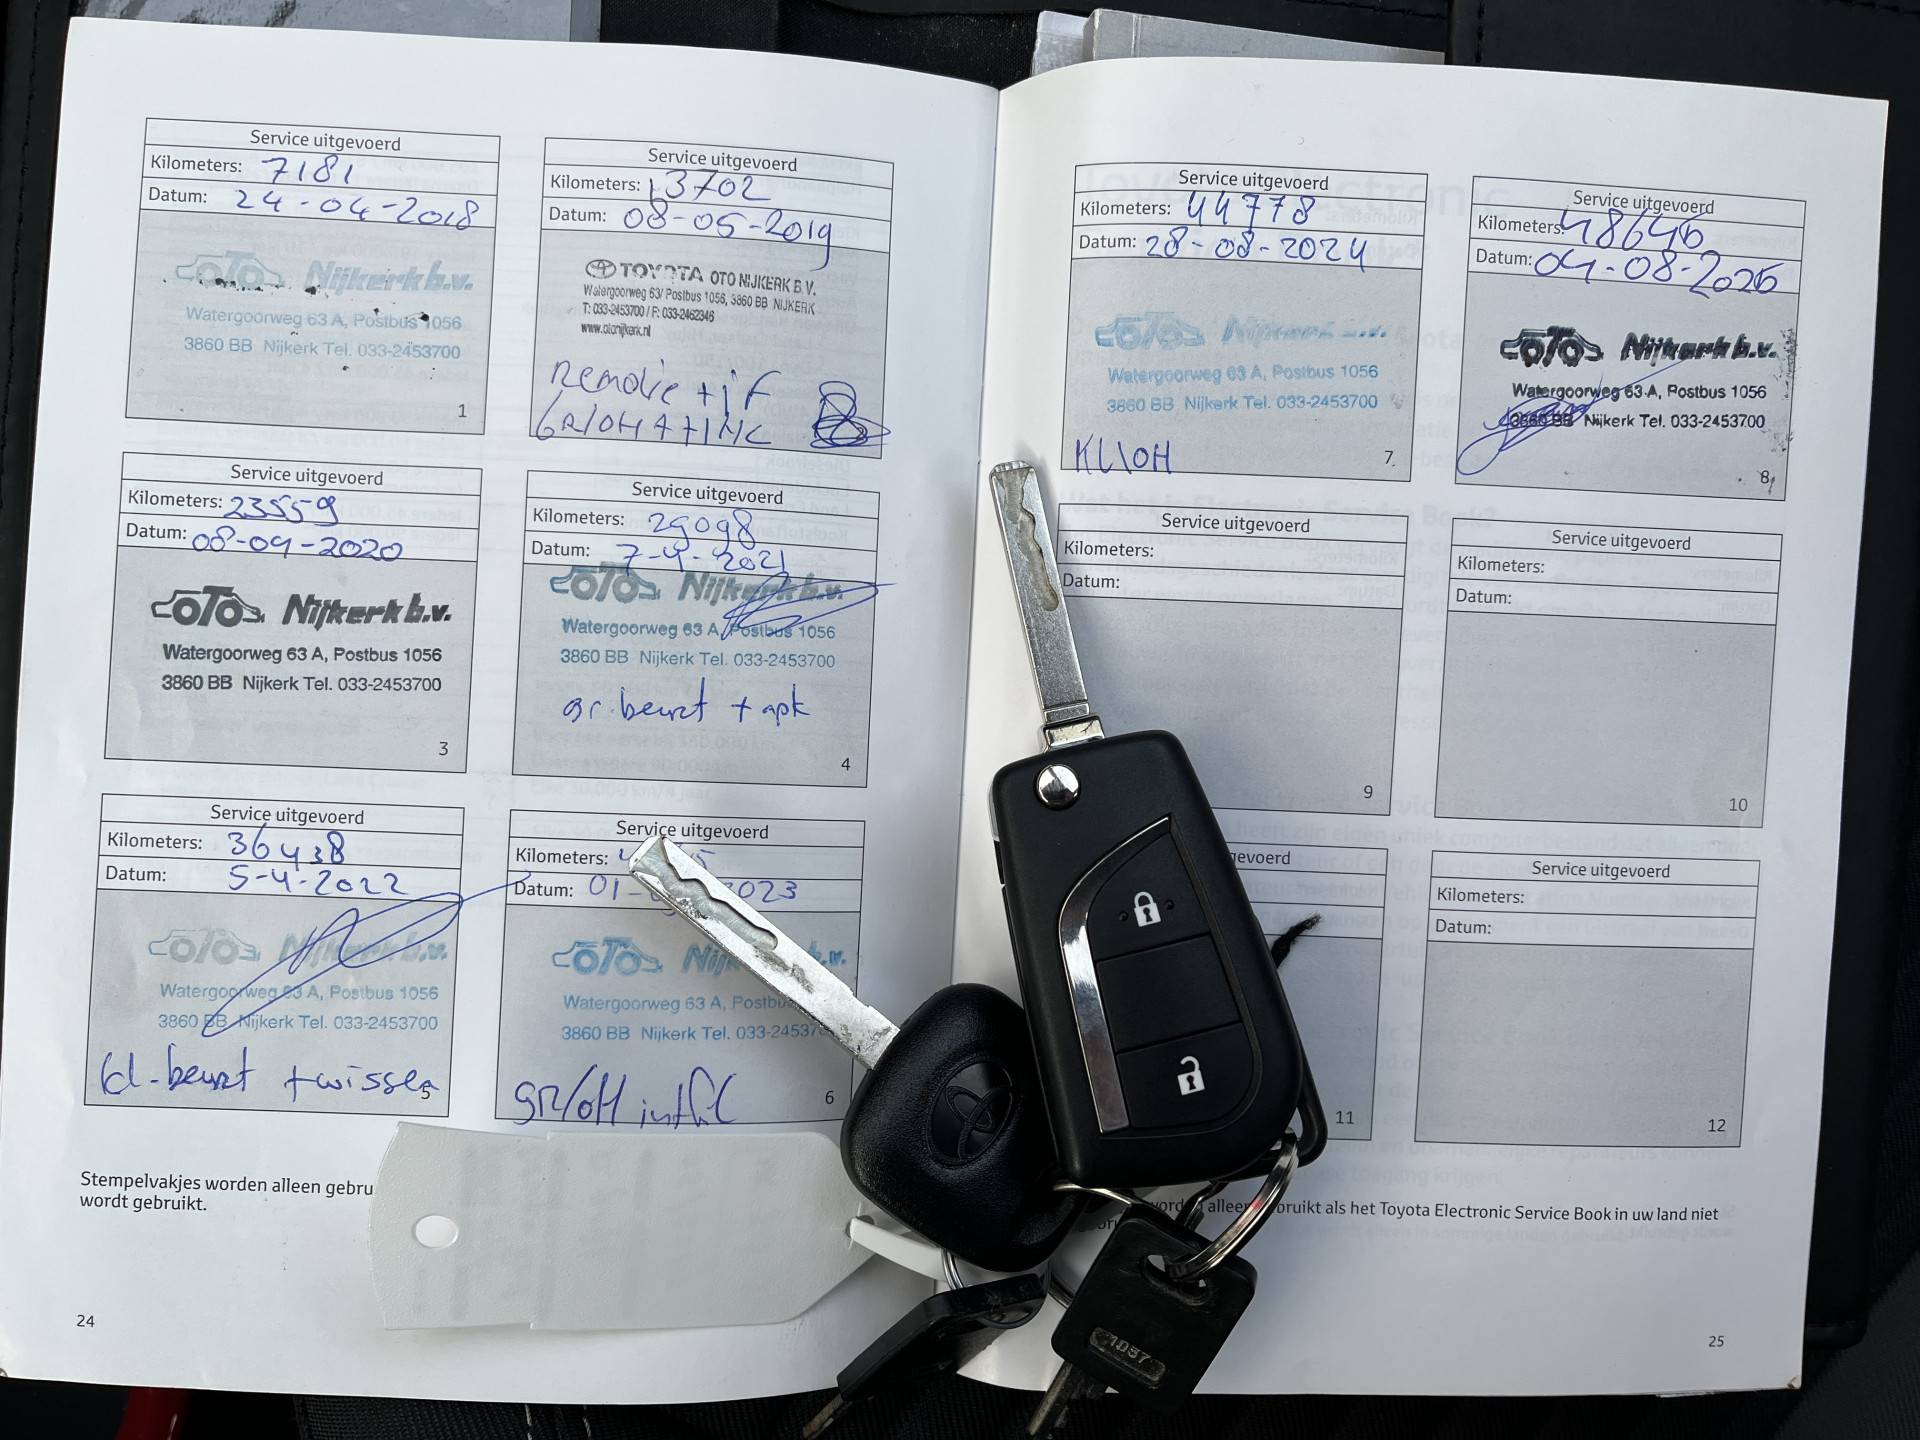 Service uitgevoerd
Kilometers: 7181
Datum: 24-04-2018
OTO Nijkerk b.v.
Watergoorweg 63 A, Postbus 1056
3860 BB Nijkerk Tel. 033-2453700
1
Service uitgevoerd
Kilometers: 13702
Datum: 08-05-2019
TOYOTA OTO NIJKERK B.V.
Watergoorweg 63/ Postbus 1056, 3860 BB NIJKERK
T: 033-2453700 / F: 033-2462346
www.otonijkerk.nl
GR/OH A+INC
Service uitgevoerd
Kilometers: 23559
Datum: 08-09-2020
OTO Nijkerk b.v.
Watergoorweg 63 A, Postbus 1056
3860 BB Nijkerk Tel. 033-2453700
3
Service uitgevoerd
Kilometers: 29098
Datum: 7-4-2021
OTO Nijkerk b.v.
Watergoorweg 63 A, Postbus 1056
3860 BB Nijkerk Tel. 033-2453700
gr. beurt + apk
4
Service uitgevoerd
Kilometers: 36438
Datum: 5-4-2022
OTO Nijkerk b.v.
Watergoorweg 63 A, Postbus 1056
3860 BB Nijkerk Tel. 033-2453700
kl. beurt + wissen
5
Service uitgevoerd
Kilometers:
Datum: 01- 2023
OTO Nijk b.v.
Watergoorweg 63 A, Postbu
3860 BB Nijkerk Tel. 033-24537
GR/OH
6
Stempelvakjes worden alleen gebru
wordt gebruikt.
24
Service uitgevoerd
Kilometers: 44778
Datum: 28-08-2024
OTO Nijkerk b.v.
Watergoorweg 63 A, Postbus 1056
3860 BB Nijkerk Tel. 033-2453700
KL\OH
7
Service uitgevoerd
Kilometers: 48646
Datum: 04-08-2025
OTO Nijkerk b.v.
Watergoorweg 63 A, Postbus 1056
3860 BB Nijkerk Tel. 033-2453700
8
Service uitgevoerd
Kilometers:
Datum:
9
Service uitgevoerd
Kilometers:
Datum:
10
gevoerd
11
Service uitgevoerd
Kilometers:
Datum:
12
alleen gebruikt als het Toyota Electronic Service Book in uw land niet
25